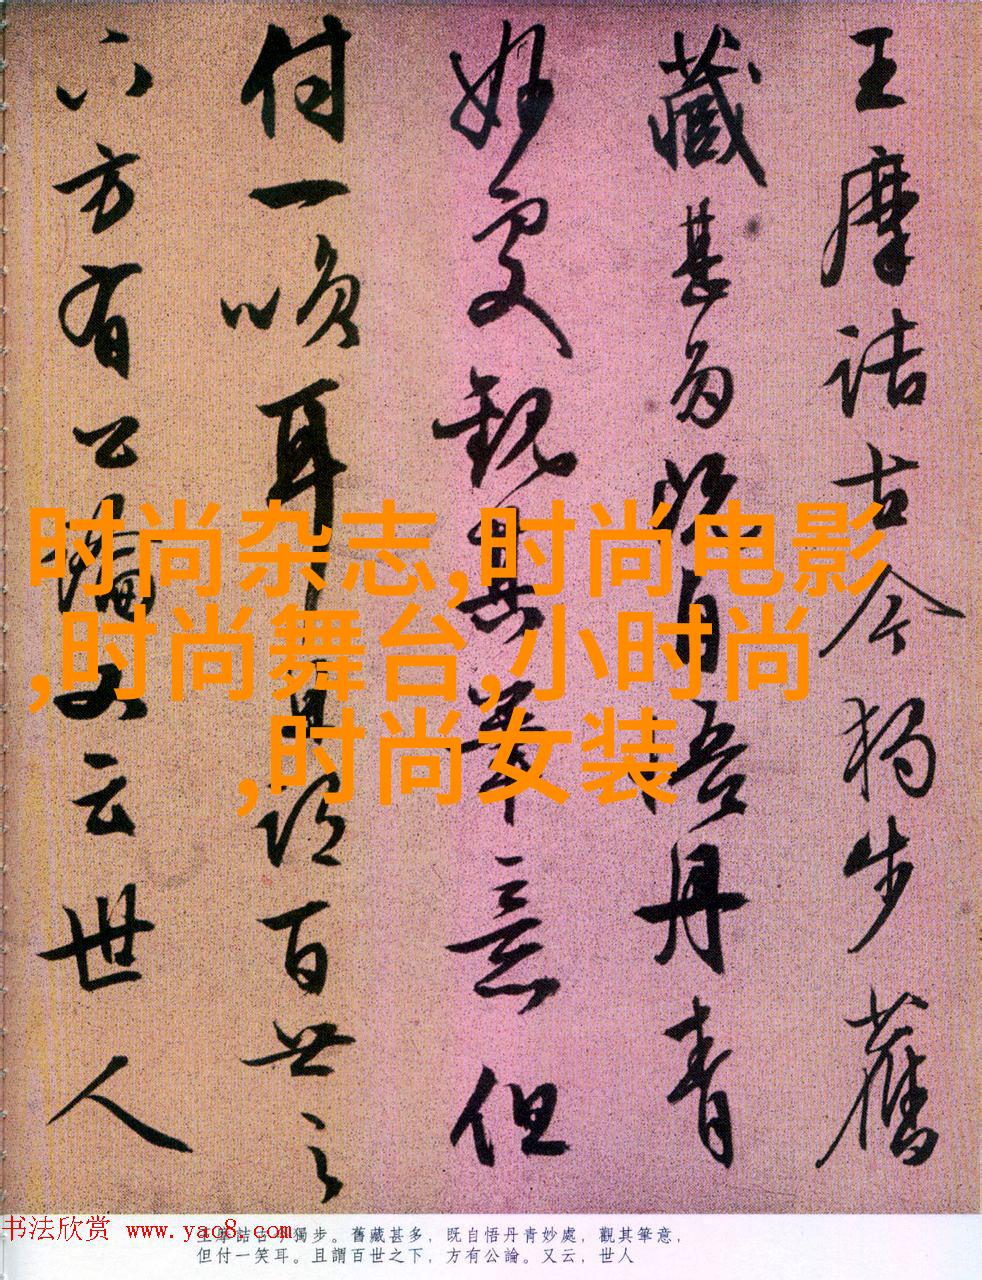 王摩詰古今獨步舊
藏甚多既自悟丹青
妙處觀其筆意但
付一笑耳且謂百世之
下方有公論又云世人
时尚杂志,时尚电影
,时尚舞台,小时尚
,时尚女装
书法欣赏 www.yac8.com
王摩詰古今獨步。舊藏甚多，既自悟丹青妙處，觀其筆意，
但付一笑耳。且謂百世之下，方有公論。又云，世人